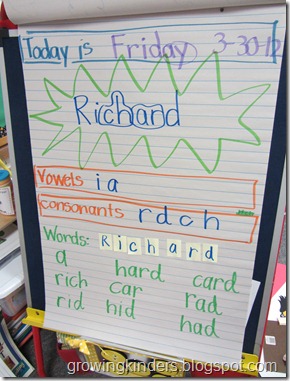 Today is Friday 3-30-12
Richard
Vowels i a
consonants r d c h
Words: R i c h a r d
a hard card
rich car rad
rid hid had
growingkinders.blogspot.com